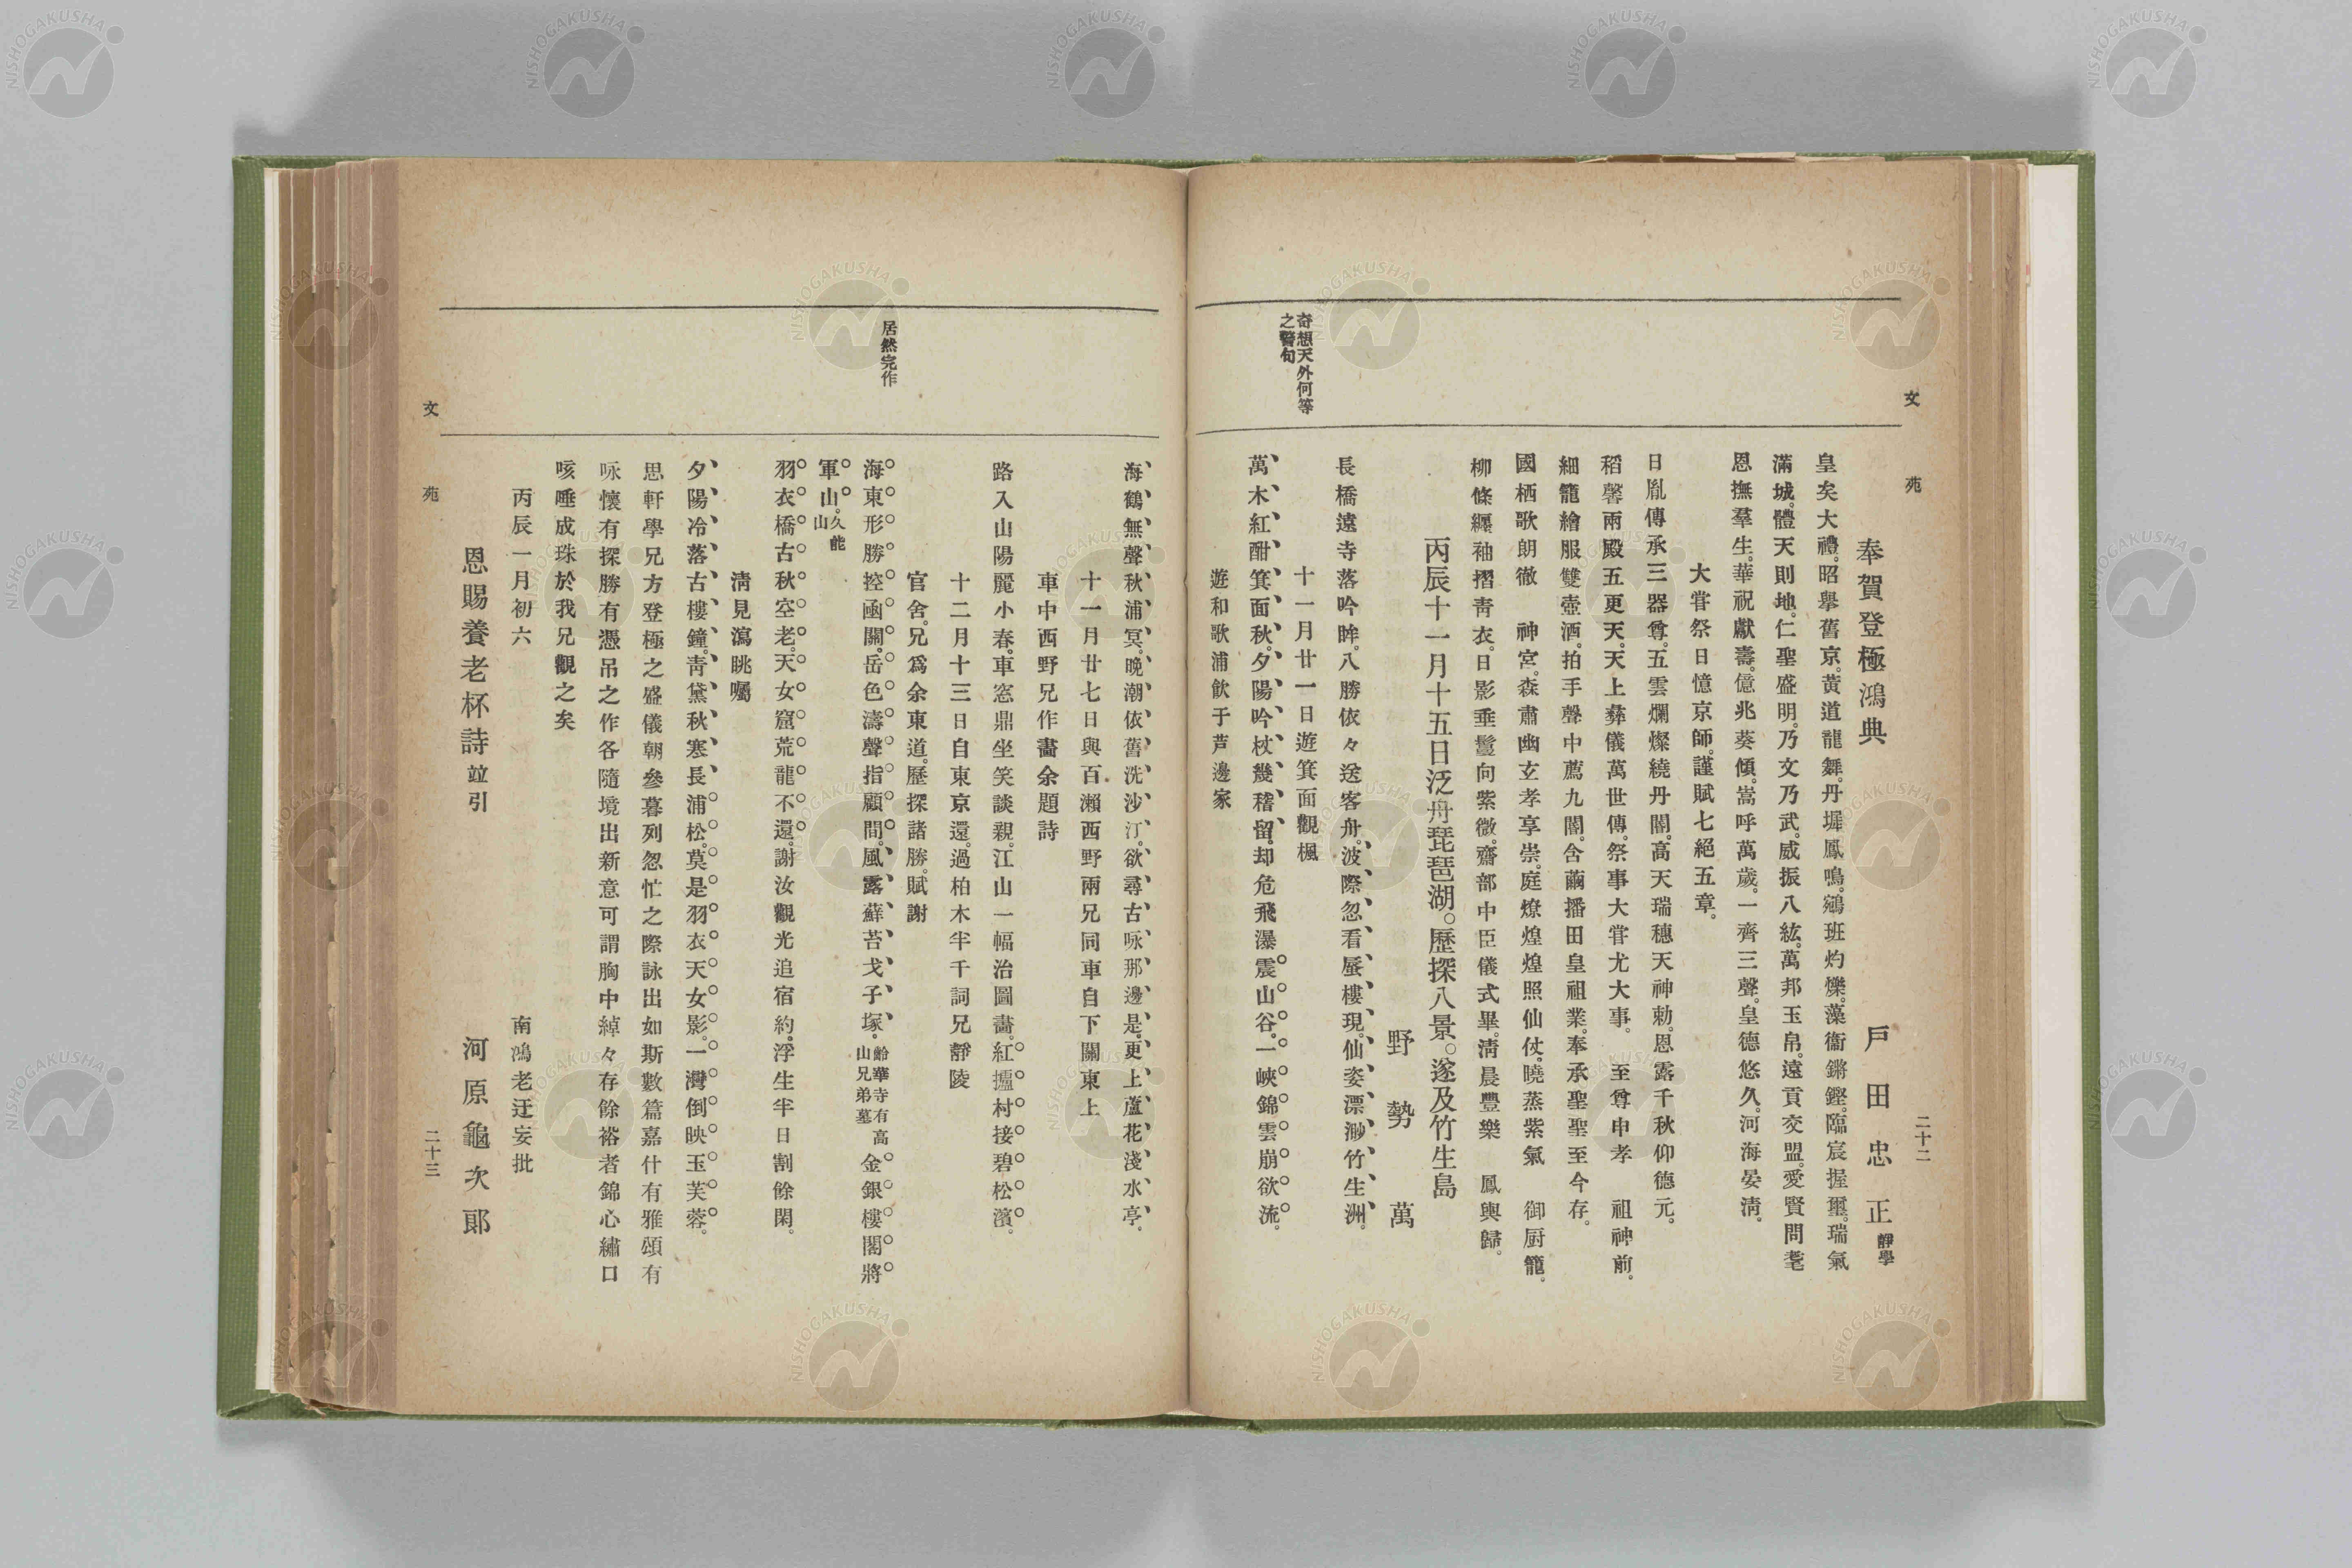 文苑
二十二
奉賀登極鴻典
戸田忠正 靜學
皇矣大禮。昭擧舊京。黃道龍舞。丹墀鳳鳴。鵷班灼爍。藻衞鏘鏗。臨宸握璽。瑞氣
滿城。體天則地。仁聖盛明。乃文乃武。威振八紘。萬邦玉帛。遠貢交盟。愛賢問耄
恩撫羣生。華祝獻壽。億兆葵傾。嵩呼萬歲。一齊三聲。皇德悠久。河海晏淸。
大甞祭日憶京師。謹賦七絕五章。
日胤傳承三器尊。五雲爛燦繞丹閣。高天瑞穗天神勅。恩露千秋仰德元。
稻馨兩殿五更天。天上彝儀萬世傳。祭事大甞尤大事。 至尊申孝 祖神前。
細籠繪服雙壺酒。拍手聲中薦九閽。含繭播田皇祖業。奉承聖聖至今存。
國栖歌朗徹 神宮。森肅幽玄孝享崇。庭燎煌煌照仙仗。曉蒸紫氣 御厨籠。
柳條纒袖摺靑衣。日影垂鬘向紫微。齋部中臣儀式畢。淸晨豐樂 鳳輿歸。
丙辰十一月十五日泛舟琵琶湖。歷探八景。遂及竹生島
野勢萬
長橋遠寺落吟眸。八勝依々送客舟。波際忽看蜃樓現。仙姿漂渺竹生洲。
十一月廿一日遊箕面觀楓
奇想天外何等
之警句
萬木紅酣箕面秋。夕陽吟杖幾稽留。却危飛瀑震山谷。一峽錦雲崩欲流。
遊和歌浦飮于芦邊家
海鶴無聲秋浦冥。晚潮依舊洗沙汀。欲尋古咏那邊是。更上蘆花淺水亭。
十一月廿七日與百瀨西野兩兄同車自下關東上
車中西野兄作畵余題詩
路入山陽麗小春。車窓鼎坐笑談親。江山一幅治圖畵。紅壚村接碧松濱。
十二月十三日自東京還。過柏木半千詞兄靜陵
官舍。兄爲余東道。歷探諸勝。賦謝
居然完作
海東形勝控函關。岳色濤聲指顧間。風露蘇苔戈子塚。 齡華寺有高
山兄弟墓 金銀樓閣將
軍山。 久能
山
羽衣橋古秋空老。天女窟荒龍不還。謝汝觀光追宿約。浮生半日割餘閑。
淸見瀉眺囑
夕陽冷落古樓鐘。靑黛秋寒長浦松。莫是羽衣天女影。一灣倒映玉芙蓉。
思軒學兄方登極之盛儀朝參暮列忽忙之際詠出如斯數篇嘉什有雅頌有
咏懷有探勝有憑吊之作各隨境出新意可謂胸中綽々存餘裕者錦心繡口
咳唾成珠於我兄觀之矣
丙辰一月初六
南鴻老迂妄批
恩賜養老杯詩竝引
河原龜次郞
文苑
二十三